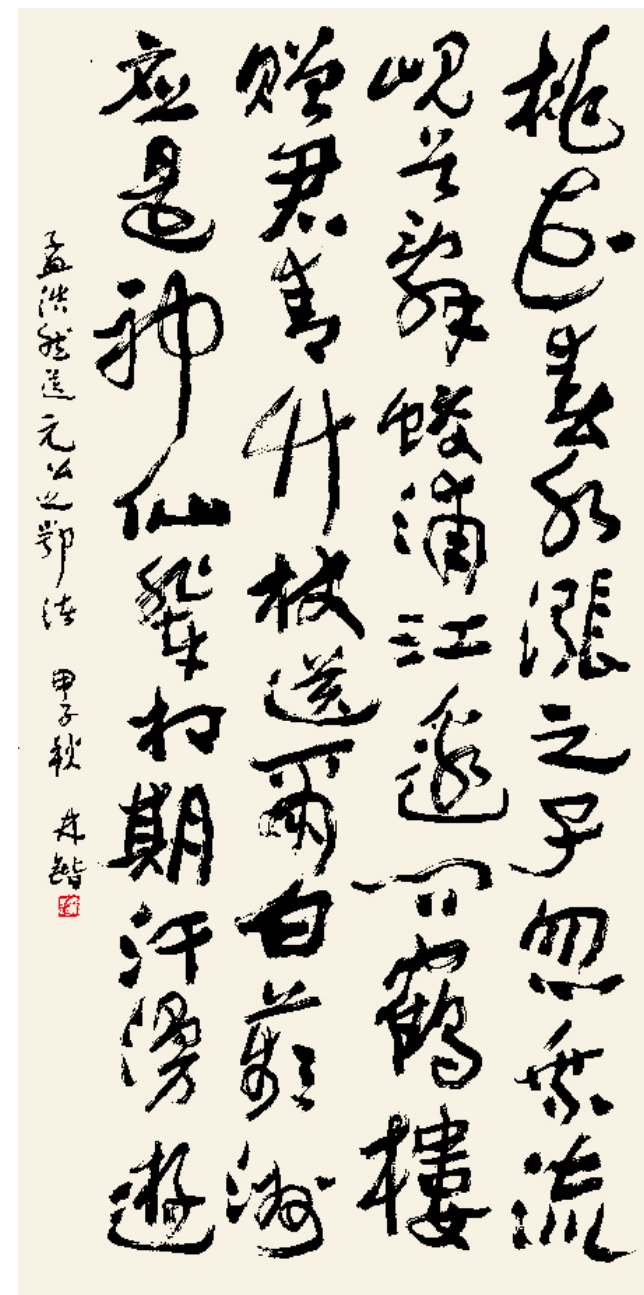 桃花春水漲之子忽乘流
峴首辭蛟浦江邊問鶴樓
贈君青竹杖送爾白蘋洲
應是神仙輩相期汗漫遊
孟浩然送元公之鄂渚 甲子秋 朱鍇